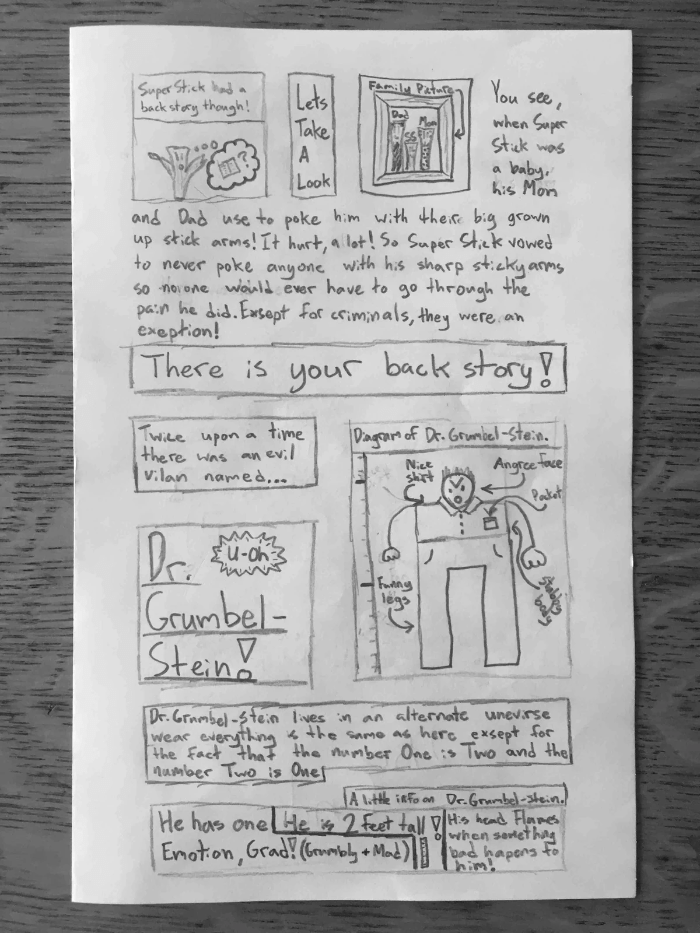 Super Stick had a
back story though!
Lets
Take
A
Look
Family Picture
Dad
SS
Mom
?
You see,
when Super
Stick was
a baby,
his Mom
and Dad use to poke him with their big grown
up stick arms! It hurt, a lot! So Super Stick vowed
to never poke anyone with his sharp sticky arms
so no one would ever have to go through the
pain he did. Exsept for criminals, they were an
exeption!
There is your back story!
Twice upon a time
there was an evil
vilan named...
Dr.
Grumbel-
Stein!
U-oh
Diagram of Dr. Grumbel-Stein.
Nice
shirt
Angree face
Pocket
Funny
legs
body
Dr. Grumbel-Stein lives in an alternate unevirse
wear everything is the same as here exsept for
the fact that the number One is Two and the
number Two is One!
A little info on Dr. Grumbel-Stein.
He has one
Emotion, Grad! (Grumbly + Mad)
He is 2 feet tall!
His head Flames
when something
bad hapens to
him!